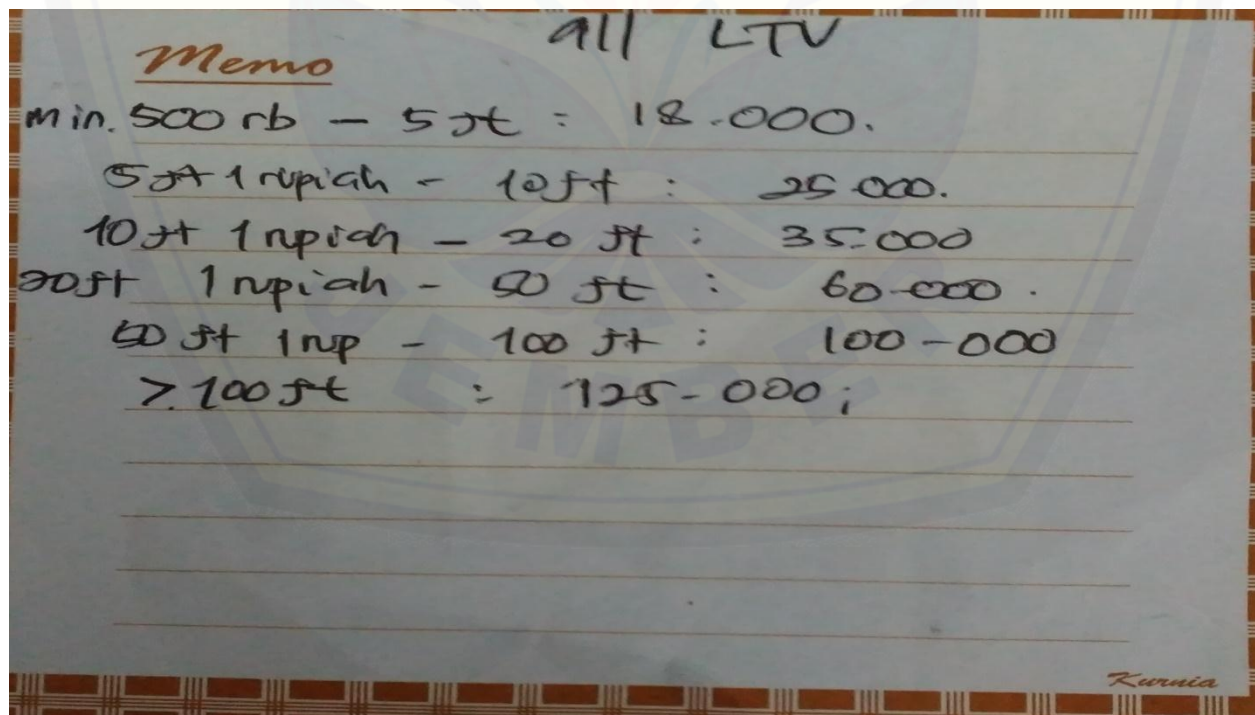 all LTV
Memo
min. 500 rb - 5 jt : 18.000.
5 jt 1 rupiah - 10 jt : 25.000.
10 jt 1 rupiah - 20 jt : 35.000
20 jt 1 rupiah - 50 jt : 60.000.
50 jt 1 rup - 100 jt : 100-000
> 100 jt : 125-000;
JEMBER
Kurnia